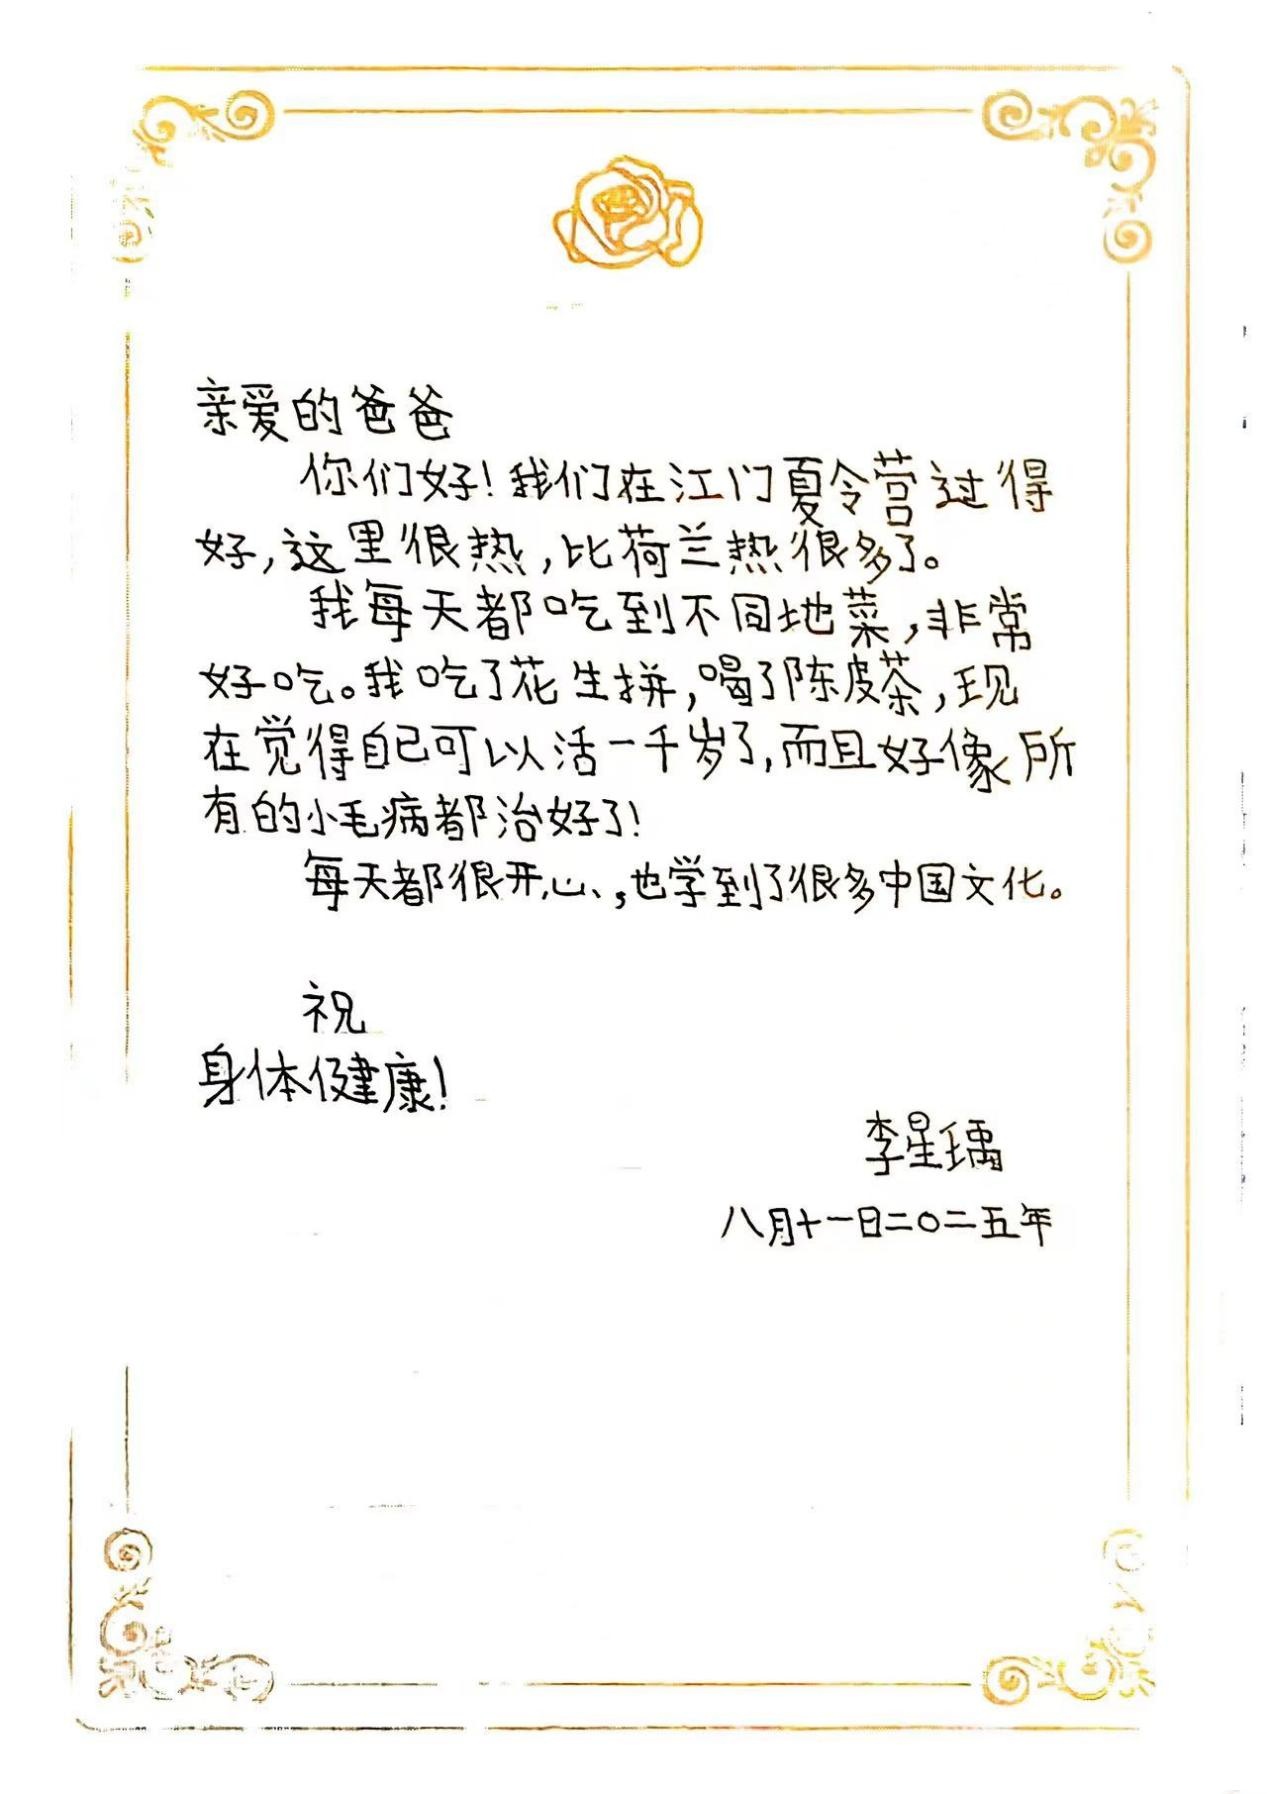 亲爱的爸爸
你们好！我们在江门夏令营过得
好，这里很热，比荷兰热很多了。
我每天都吃到不同地菜，非常
好吃。我吃了花生拼，喝了陈皮茶，现
在觉得自己可以活一千岁了，而且好像所
有的小毛病都治好了！
每天都很开心，也学到了很多中国文化。
祝
身体健康！
李星瑀
八月十一日二〇二五年